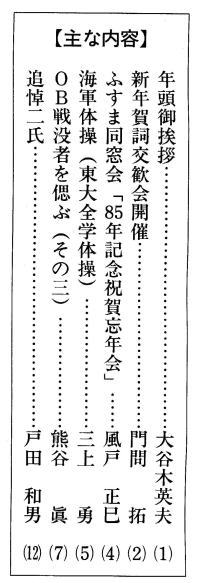 【主な内容】
年頭御挨拶……………………………大谷木英夫 (1)
新年賀詞交歓会開催…………………門間 拓 (2)
ふすま同窓会「85年記念祝賀忘年会」……風戸 正巳 (4)
海軍体操(東大全学体操)……………三上 勇 (5)
OB戦没者を偲ぶ(その三)…………熊谷 眞 (7)
追悼二氏………………………………戸田 和男 (12)